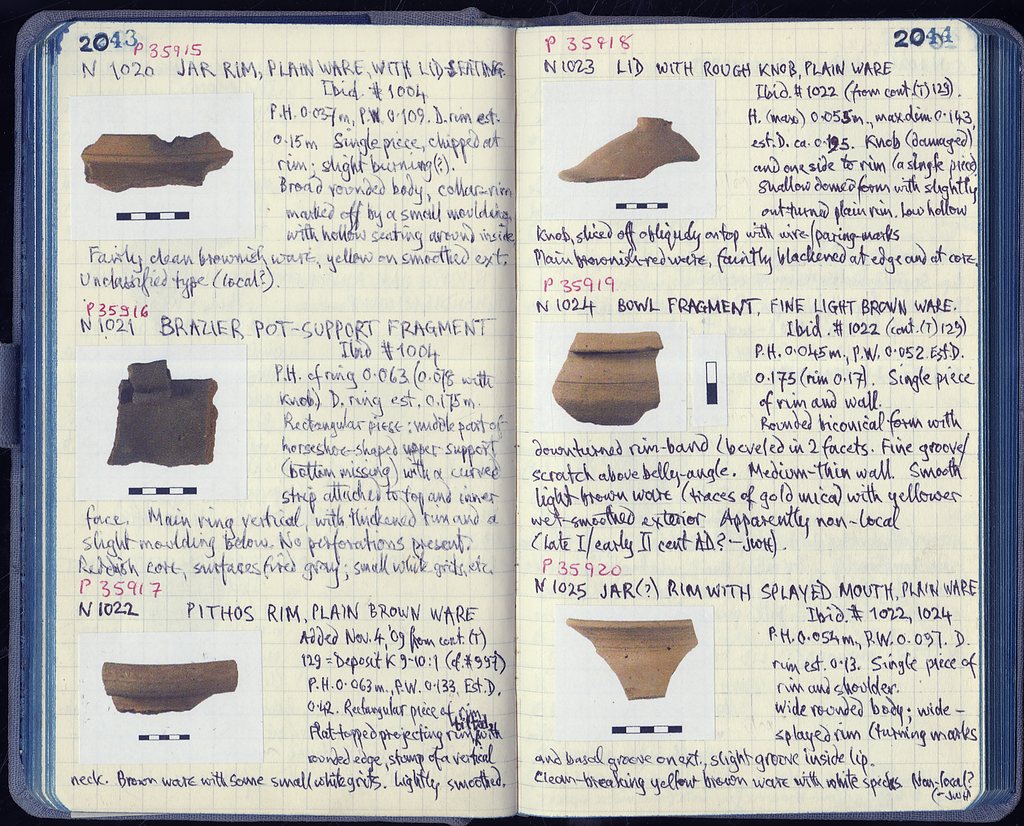 2043
P 35915
N 1020 JAR RIM, PLAIN WARE, WITH LID SEATING.
Ibid. # 1004
P.H. 0.037m, P.W. 0.109. D. rim est.
0.15m Single piece, chipped at
rim; slight burning(?).
Broad rounded body, collar-rim
marked off by a small moulding,
with hollow seating around inside
Fairly clean brownish ware, yellow on smoothed ext.
Unclassified type (local?).
P 35916
N 1021 BRAZIER POT-SUPPORT FRAGMENT
Ibid # 1004
P.H. of ring 0.063 (0.078 with
knob) D. ring est. 0.175m.
Rectangular piece: middle part of
horseshoe-shaped upper support
(bottom missing) with a curved
strip attached to top and inner
face. Main ring vertical, with thickened rim and a
slight moulding below. No perforations present.
Reddish core, surfaces fired gray; small white grits, etc.
P 35917
N 1022 PITHOS RIM, PLAIN BROWN WARE
Added Nov. 4, '09 from cont. (T)
129 = Deposit K 9-10:1 (cf. # 997)
P.H. 0.063m., P.W. 0.133, Est. D.
0.42. Rectangular piece of rim
Flat-topped projecting rim with
rounded edge, stump of a vertical
neck. Brown ware with some small white grits. Lightly smoothed.
2044
P 35918
N 1023 LID WITH ROUGH KNOB, PLAIN WARE
Ibid. # 1022 (from cont. (T) 129).
H. (max) 0.055m, max dim 0.143,
est. D. ca. 0.195. Knob (damaged)
and one side to rim (a single piece)
Shallow domed form with slightly
out-turned plain rim. Low hollow
knob, sliced off obliquely on top with wire/paring-marks
Plain brownish-red ware, faintly blackened at edge and at core.
P 35919
N 1024 BOWL FRAGMENT, FINE LIGHT BROWN WARE.
Ibid. # 1022 (cont. (T) 129)
P.H. 0.045m, P.W. 0.052. Est. D.
0.175 (rim 0.17). Single piece
of rim and wall.
Rounded biconical form with
downturned rim-band (beveled in 2 facets. Fine groove/
scratch above belly-angle. Medium-thin wall. Smooth
light brown ware (traces of gold mica) with yellower
wet-smoothed exterior Apparently non-local
(late I/early II cent AD? -JWH).
P 35920
N 1025 JAR(?) RIM WITH SPLAYED MOUTH, PLAIN WARE
Ibid. # 1022, 1024
P.H. 0.054m, P.W. 0.097. D.
rim est. 0.13. Single piece of
rim and shoulder.
Wide rounded body; wide-
splayed rim (turning marks
and basal groove on ext., slight groove inside lip.
Clean-breaking yellow brown ware with white specks. Non-local?
(-JWH)